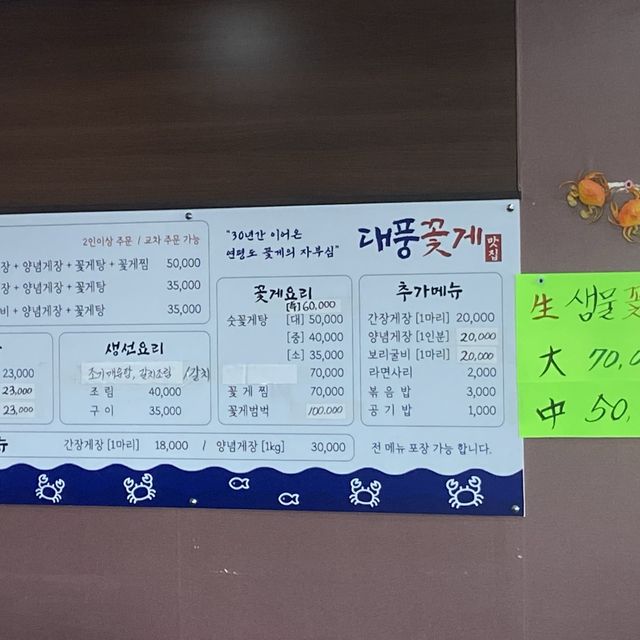 2인이상 주문 / 교차 주문 가능
장 + 양념게장 + 꽃게탕 + 꽃게찜 50,000
장 + 양념게장 + 꽃게탕 35,000
비 + 양념게장 + 꽃게탕 35,000
23,000
23,000
23,000
생선요리
조기매운탕, 갈치조림 /갈치
조 림 40,000
구 이 35,000
"30년간 이어온
연평도 꽃게의 자부심"
대풍꽃게 맛집
꽃게요리
60,000
숫꽃게탕 [대] 50,000
[중] 40,000
[소] 35,000
70,000
꽃 게 찜 70,000
꽃게범벅 100,000
추가메뉴
간장게장 [1마리] 20,000
양념게장 [1인분] 20,000
보리굴비 [1마리] 20,000
라면사리 2,000
볶 음 밥 3,000
공 기 밥 1,000
뉴 간장게장 [1마리] 18,000 / 양념게장 [1kg] 30,000
전 메뉴 포장 가능 합니다.
生 샘물 꽃
大 70,0
中 50,